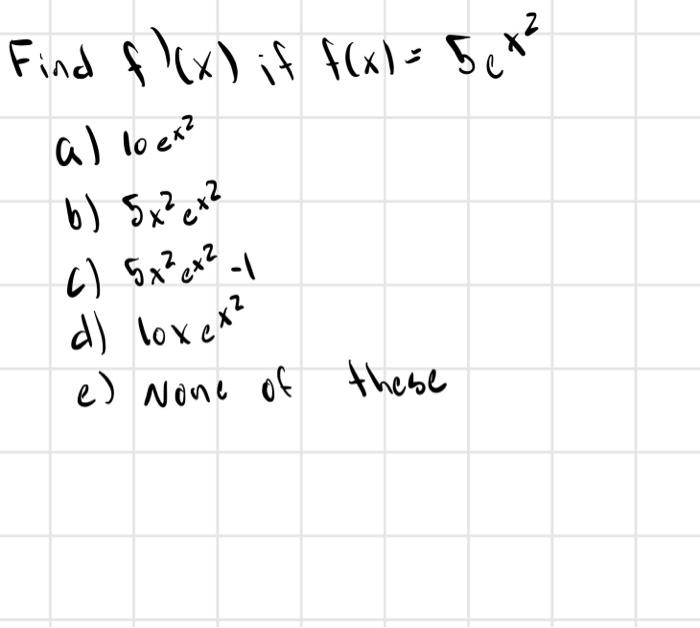 Find f'(x) if f(x) = 5e^x^2
a) 10e^x^2
b) 5x^2 e^x^2
c) 5x^2 e^x^2 -1
d) 10xe^x^2
e) None of these